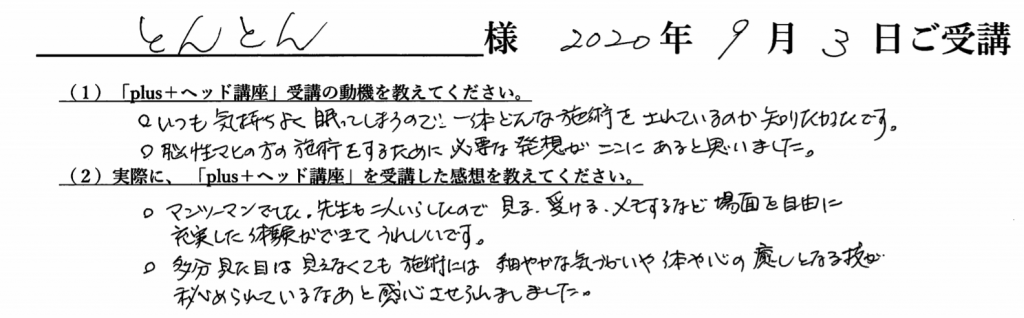 とんとん 様 2020年 9月 3日ご受講
(1)「plus+ヘッド講座」受講の動機を教えてください。
○ いつも気持ちよく眠ってしまうので、一体どんな施術をされているのか知りたかったです。
○ 脳性マヒの方の施術をするために必要な発想がここにあると思いました。
(2)実際に、「plus+ヘッド講座」を受講した感想を教えてください。
○ マンツーマンでしたし、先生も二人いらしたので見る、受ける、メモするなど場面を自由に
充実した体験ができてうれしいです。
○ 多分見た目は見えなくても施術には細やかな気づかいや体や心の癒しとなる技が
秘められているなあと感心させられました。